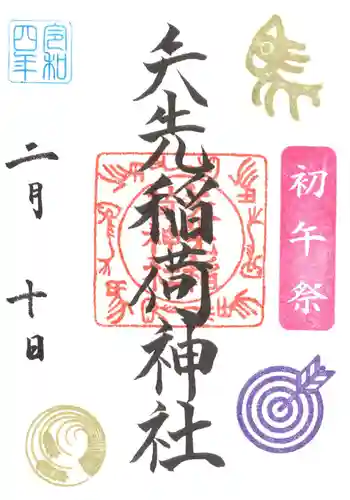 初午祭
矢先稲荷神社
令和
四年
二月
十日